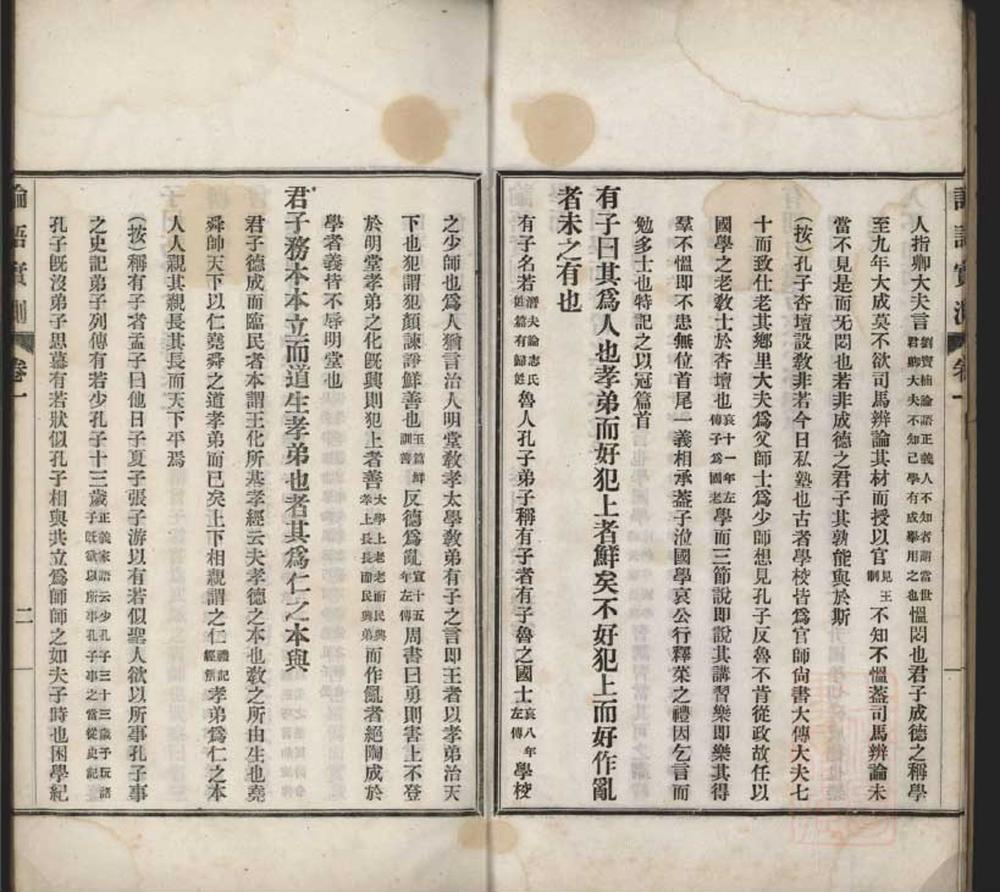 人指卿大夫言劉寶楠論語正義人不知者謂當世君卿大夫不知己學有成舉用之也慍悶也君子成德之稱學
至九年大成莫不欲司馬辨論其材而授以官見王制不知不慍蓋司馬辨論未
當不見是而无悶也若非成德之君子其孰能與於斯
(按)孔子杏壇設敎非若今日私塾也古者學校皆爲官師尙書大傳大夫七
十而致仕老其鄉里大夫爲父師士爲少師想見孔子反魯不肯從政故任以
國學之老敎士於杏壇也哀十一年左傳子爲國老學而三節說即說其講習樂即樂其得
羣不慍即不患無位首尾一義相承蓋子涖國學哀公行釋菜之禮因乞言而
勉多士也特記之以冠篇首
有子曰其爲人也孝弟而好犯上者鮮矣不好犯上而好作亂
者未之有也
有子名若潛夫論志氏姓篇有歸姓魯人孔子弟子稱有子者有子魯之國士哀八年左傳學校
之少師也爲人猶言治人明堂敎孝太學敎弟有子之言即王者以孝弟治天
下也犯謂犯顏諫諍鮮善也玉篇鮮訓善反德爲亂宣十五年左傳周書曰勇則害上不登
於明堂孝弟之化旣興則犯上者善大學上老老而民興孝上長長而民興弟而作亂者絕陶成於
學者義皆不辱明堂也
君子務本本立而道生孝弟也者其爲仁之本與
君子德成而臨民者本謂王化所基孝經云夫孝德之本也敎之所由生也堯
舜帥天下以仁堯舜之道孝弟而已矣上下相親謂之仁禮記經解孝弟爲仁之本
人人親其親長其長而天下平焉
(按)稱有子者孟子曰他日子夏子張子游以有若似聖人欲以所事孔子事
之史記弟子列傳有若少孔子十三歲正義家語云少孔子三十三歲予玩諸子旣欲以所事孔子事之當從史記
孔子旣沒弟子思慕有若狀似孔子相與共立爲師師之如夫子時也困學紀
論語實測
卷一
二